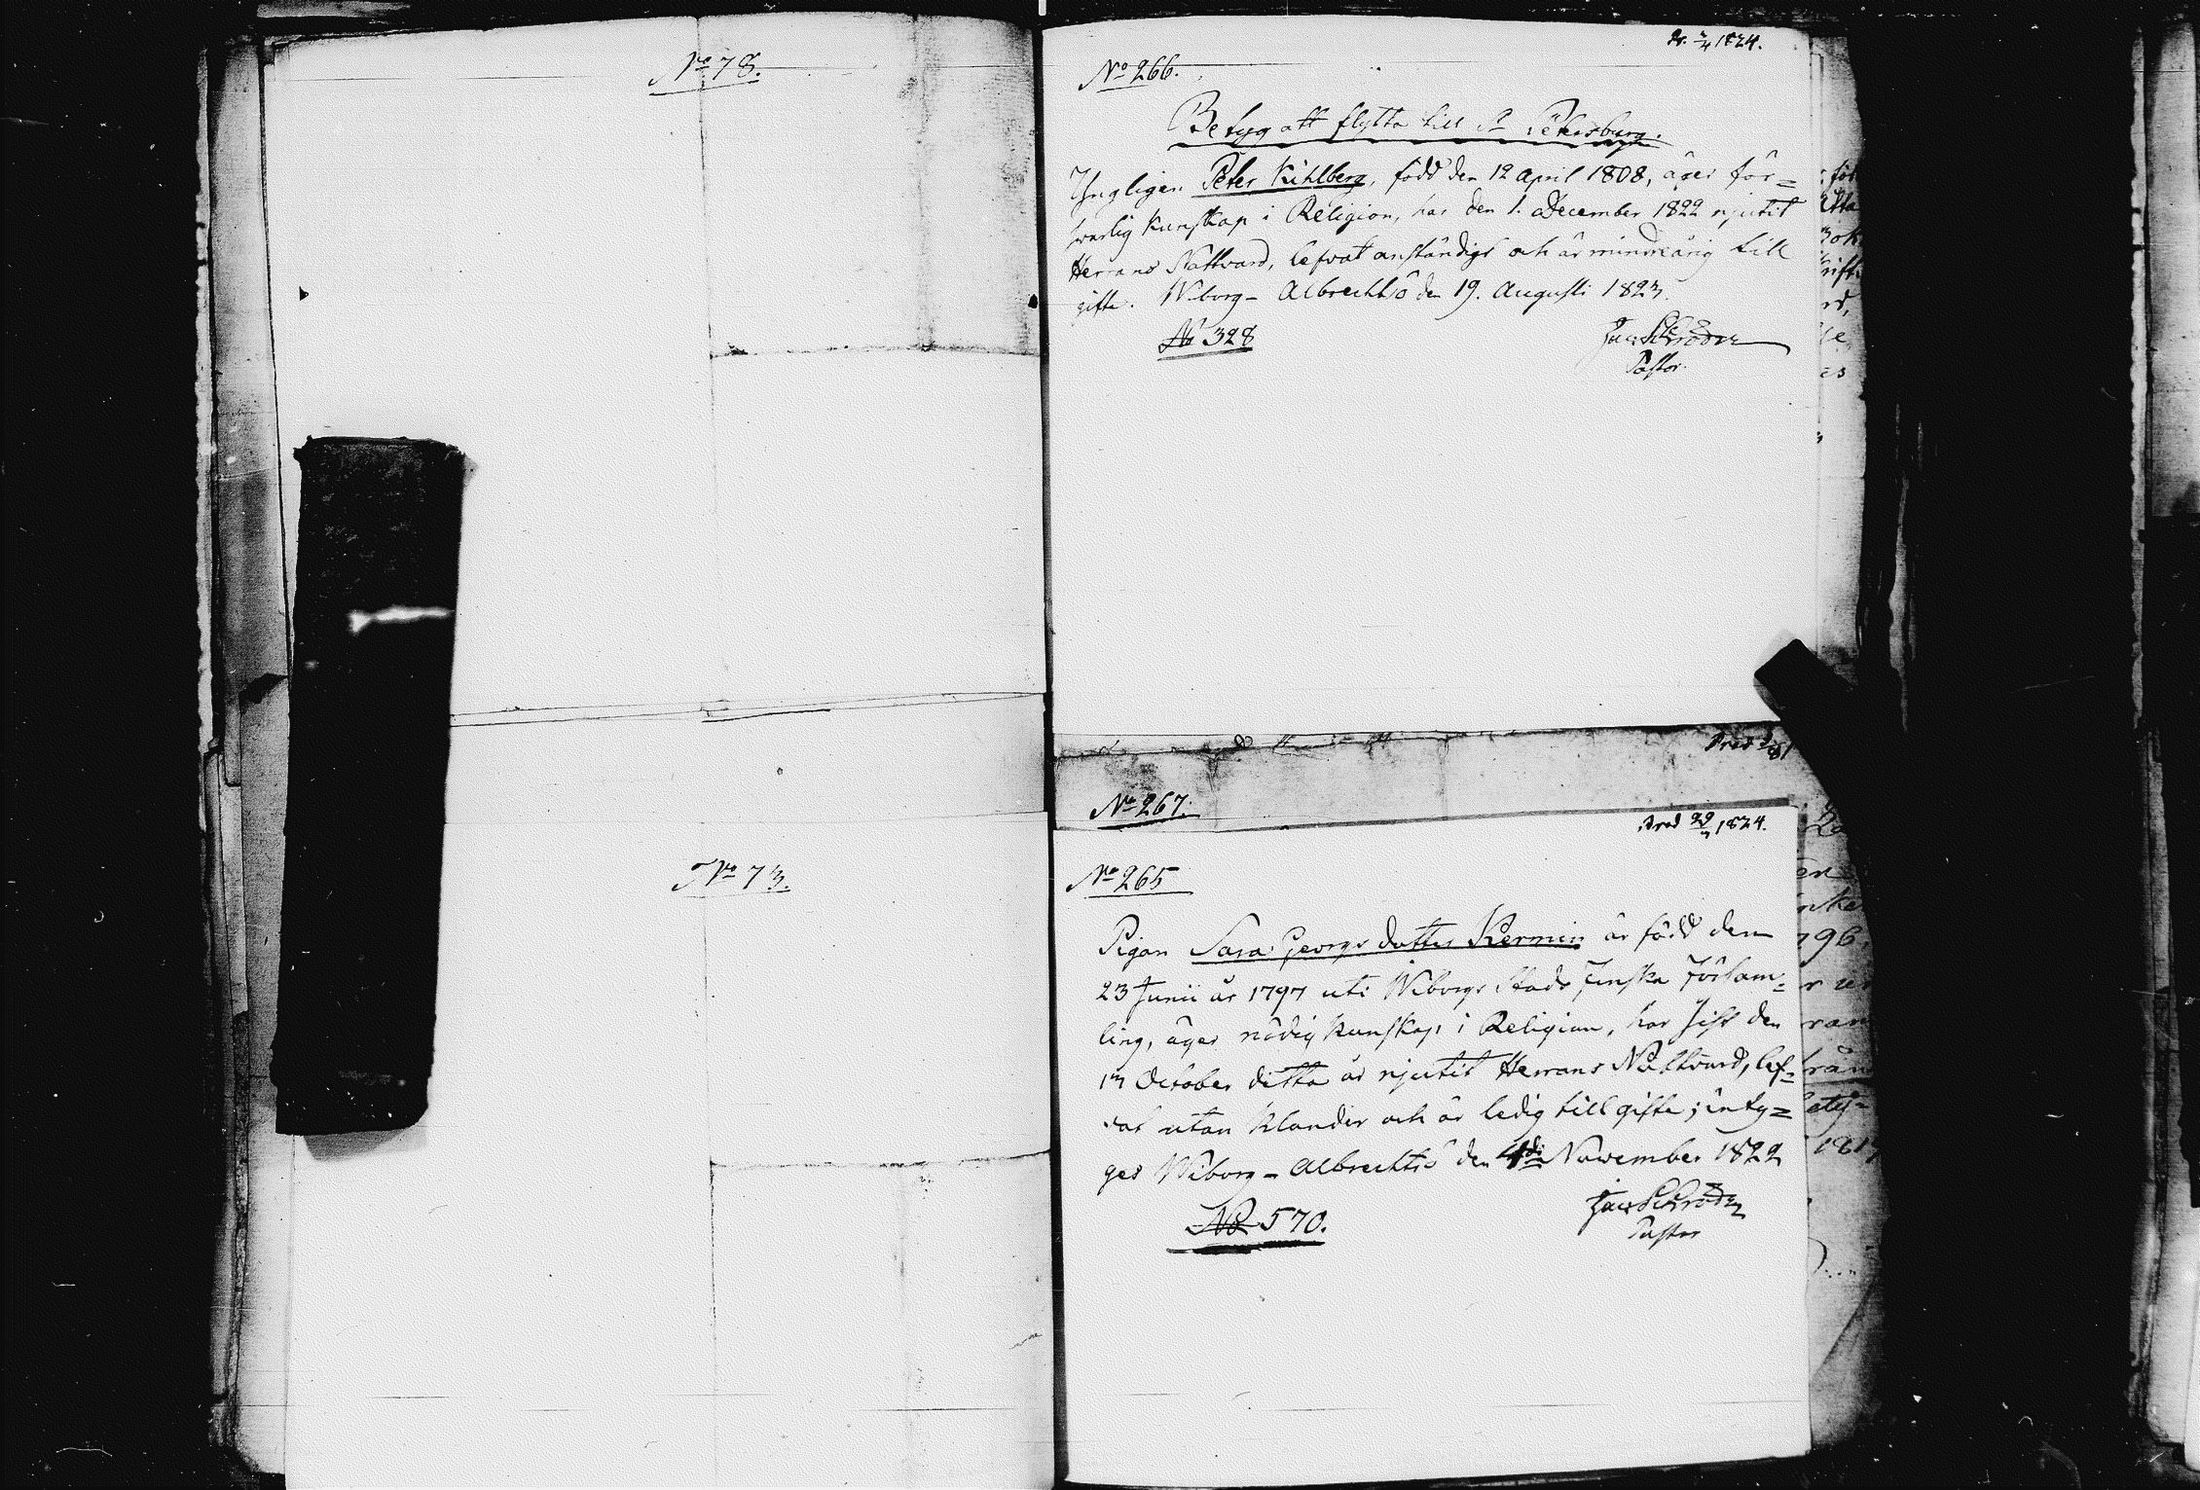 No 78.
No 73.
1824.
No 266.
Betyg att flytta till St Petersburg.
Ynglingen Peter Kihlberg, född den 12 April 1808, äger för=
svarlig kunskap i Religion, har den 1. December 1822 njutit
Herrans Nattvard, lefvat anständigt och är minderårig till
gifte. Wiborg - Albrechtsö den 19. Augusti 1823.
No 328
Jac Schröder
Pastor.
No 267.
Pred 29 1824.
No 265
Pigan Sara Georgs dotter Kermin är född den
23 Junii år 1797 uti Wiborgs Stads Finska Försam=
ling, äger nödig kunskap i Religion, har sist den
13 October detta år njutit Herrans Nattvard, lef=
vat utan klander och är ledig till gifte; inty=
ges Wiborg - Albrechtsö den 4de November 1822
No 570.
Jac Schröder
Pastor